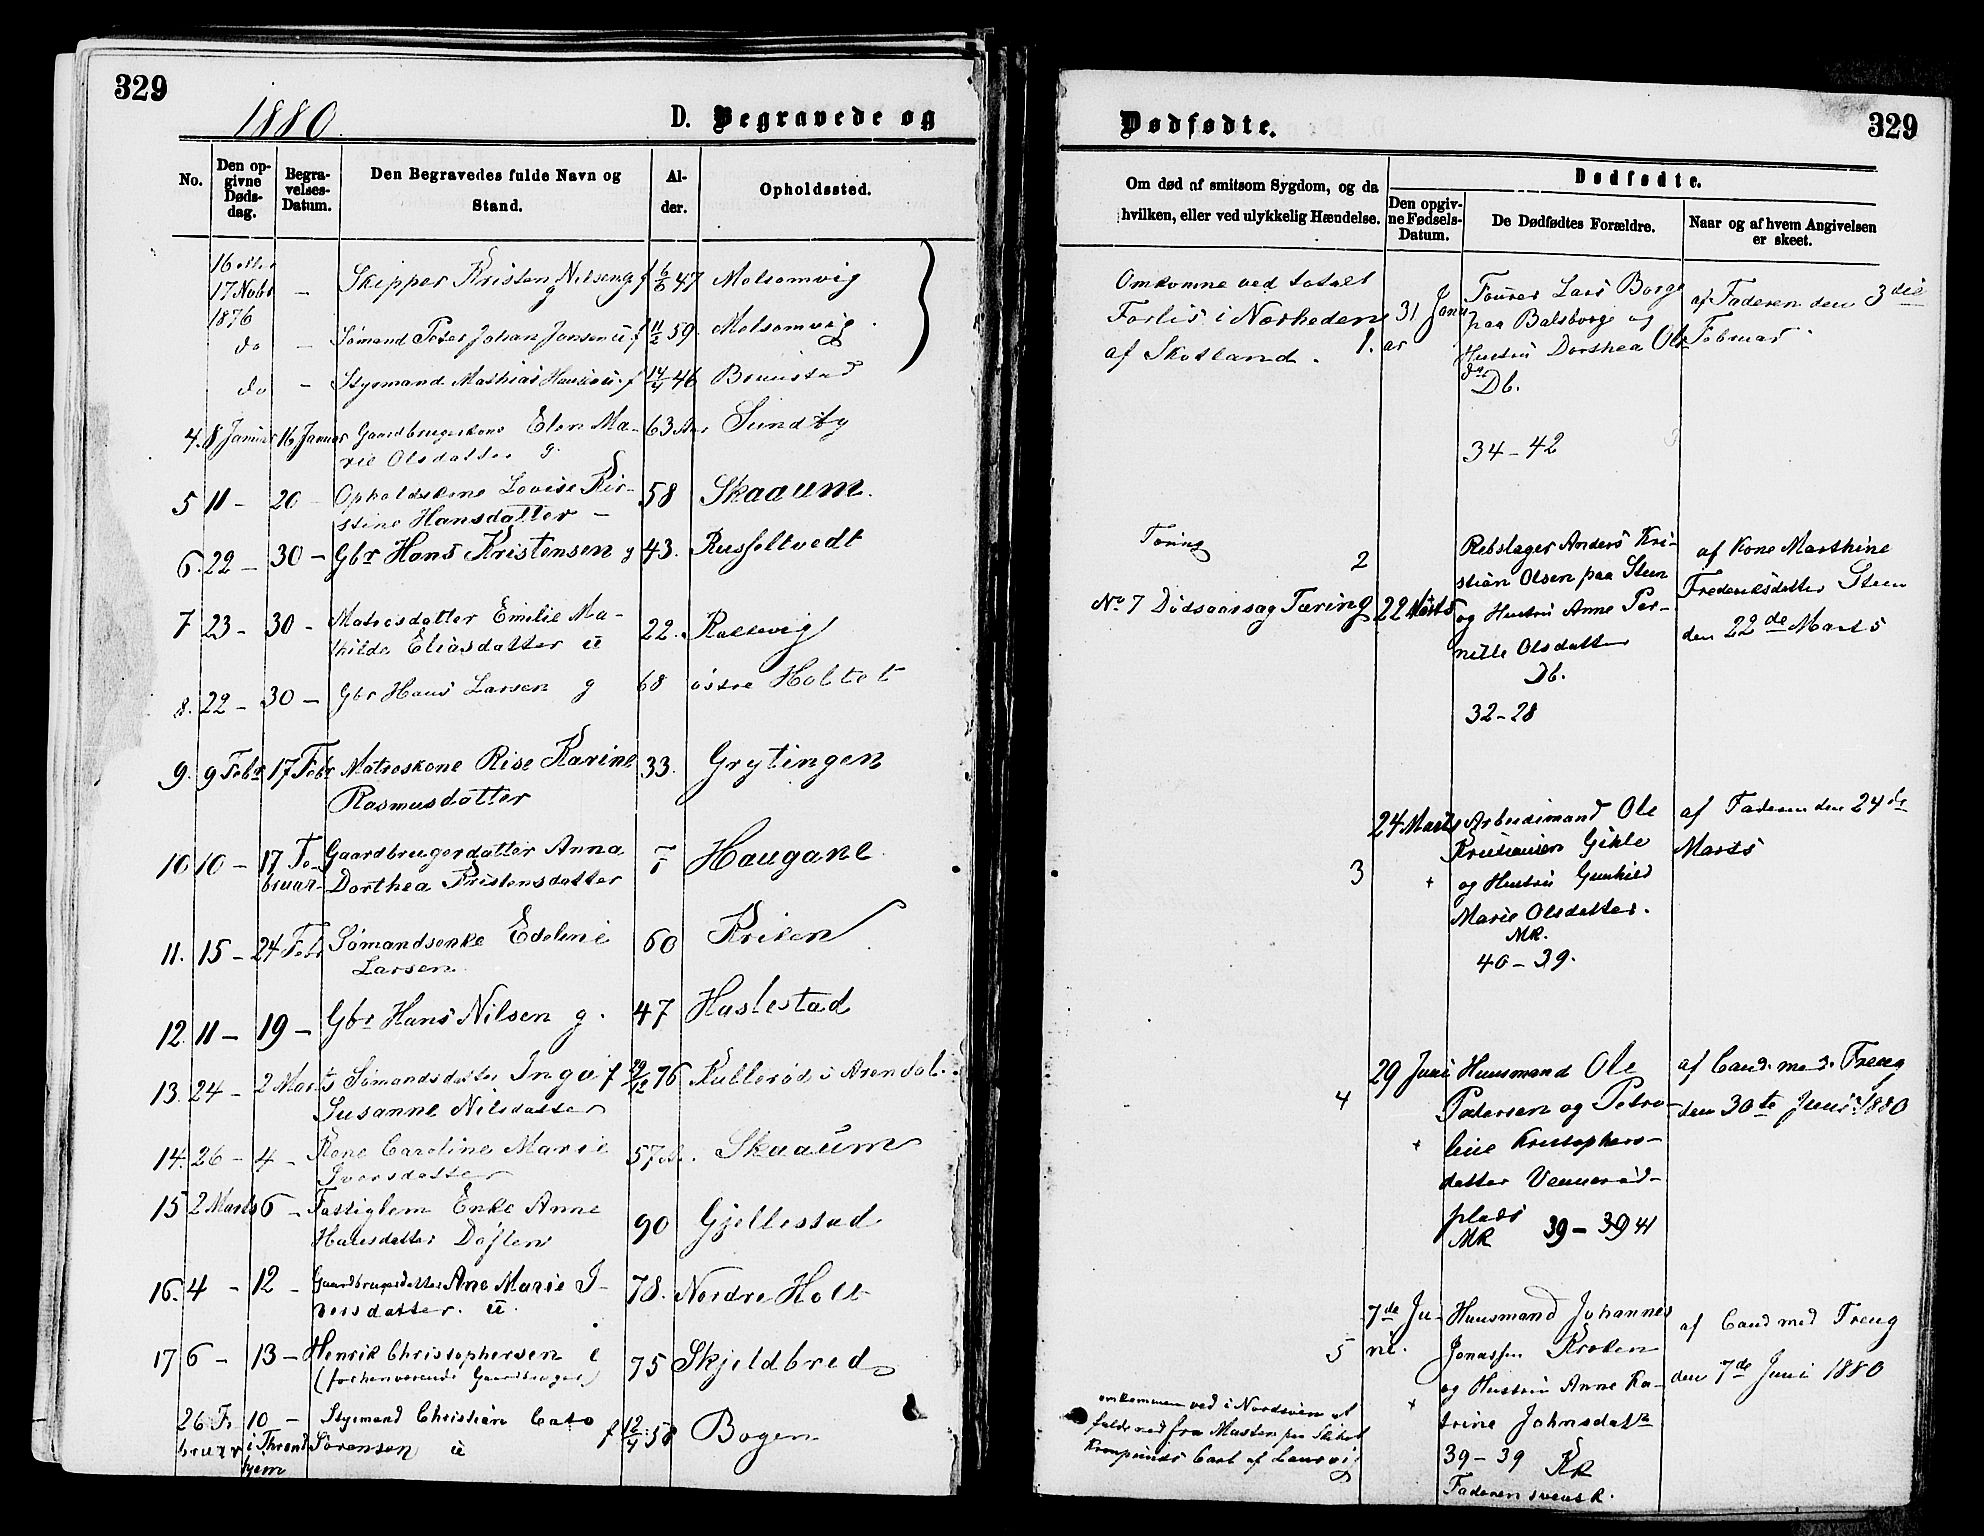 329
1880.
D. Begravede og
No.
Den opgivne Dødsdag.
Begravelses-Datum.
Den Begravedes fulde Navn og Stand.
Alder.
Opholdssted.
16 eller
17 Nobr - Skipper Kristen Nilsen g. f 6/6 47 Melsomvig
1876
do - Sømand Peter Johan Jansen u f 11/2 59 Melsomvig
do - Styrmand Mathias Hansen u. f 14/4 46 Brunstad
4. 8 Januar 16 Januar Gaardbrugerkone Elen Ma- 63 Aar Sundby
rie Olsdatter g.
5 11 - 20 - Opholdskone Lovise Kir- 58 Skaaum.
stine Hansdatter -
6. 22 - 30 - Gbr Hans Kristensen g 43.
7 23 - 30 - Matrosdatter Emilie Ma- 22. Rallevig
thilde Eliasdatter u
8. 22 - 30 - Gbr Hans Larsen g 68 østre Holtet
9. 9 Febr 17 Febr Matroskone Rise Karine 33. Grytingen
Rasmusdatter
10 10 - 17 Fe- Gaardbrugerdatter Anna Haugane
bruar- Dorthea Kristensdatter
11. 15 - 24 Feb Sømandsenke Edeline 60 Kriken
Larsen.
12. 11 - 19 - Gbr Hans Nilsen g. 47 Haslestad
13. 24 - 2 Marts Sømandsdatter Inga f 76 Kullerød i Arendal.
Susanne Nilsdatter
14. 26 - 4 - Kone Caroline Marie 57 Skaaum
Iversdatter
15 2 Marts 6 - Fattiglem Enke Anne 90 Gjellestad
Hansdatter
16. 4 - 12 - Gaardbrugerdatter Ane Marie I- 78. Nordre Holt
versdatter. u.
17 6 - 13 - Henrik Christophersen e 75 Skjeldbred
(forhenværende Gaardbruger)
26 Fe 10 - Styrmand Christian Cato f 12/4 58 Bogen
bruar i Thrond Sørensen u
hjem
Dødfødte.
329
Om død af smitsom Sygdom, og da hvilken, eller ved ulykkelig Hændelse.
Dødfødte.
Den opgivne Fødsels-Datum.
De Dødfødtes Forældre.
Naar og af hvem Angivelsen er skeet.
Omkomne ved totalt
Forlis i Nærheden
af Skotland.
1. 31 Janu
ar
Lars Borge
paa Balsborge og
Hustru Dorthea Ols
da
Db.
34 - 42
af Faderen den 3die
Februar
Tæring
No 7 Dødsaarsag Tæring
2
22 Marts
Rebslager Anders Kri-
stian Olsen paa Steen
og Hustru Anne Per-
nille Olsdatter
Db.
32 - 28
af Kone Marthine
Frederiksdatter Steen
den 22de Marts
3
24 Marts
+
Arbeidsmand Ole
Kristiansen
og Hustru Gunhild
Marie Olsdatter.
MK.
40 - 39.
af Faderen den 24de
Marts
4
29 Juni
+
Huusmand Ole
Pedersen og Petro-
line Kristophers-
datter Vennerød-
plads
MK 39 - 39 41
af Cand. med. Treng
den 30te Juni 1880
5
7de Ju-
ni.
+
Huusmand Johannes
Jonassen Kroken
og Hustru Anne Ka-
trine Johnsdatr
39 - 39 KK
Faderen svensk.
af Cand med Treng
den 7de Juni 1880
omkommen ved i Nordsøen at
falde ned fra Masten paa Skibet
Kronprinds Carl af Laurvig